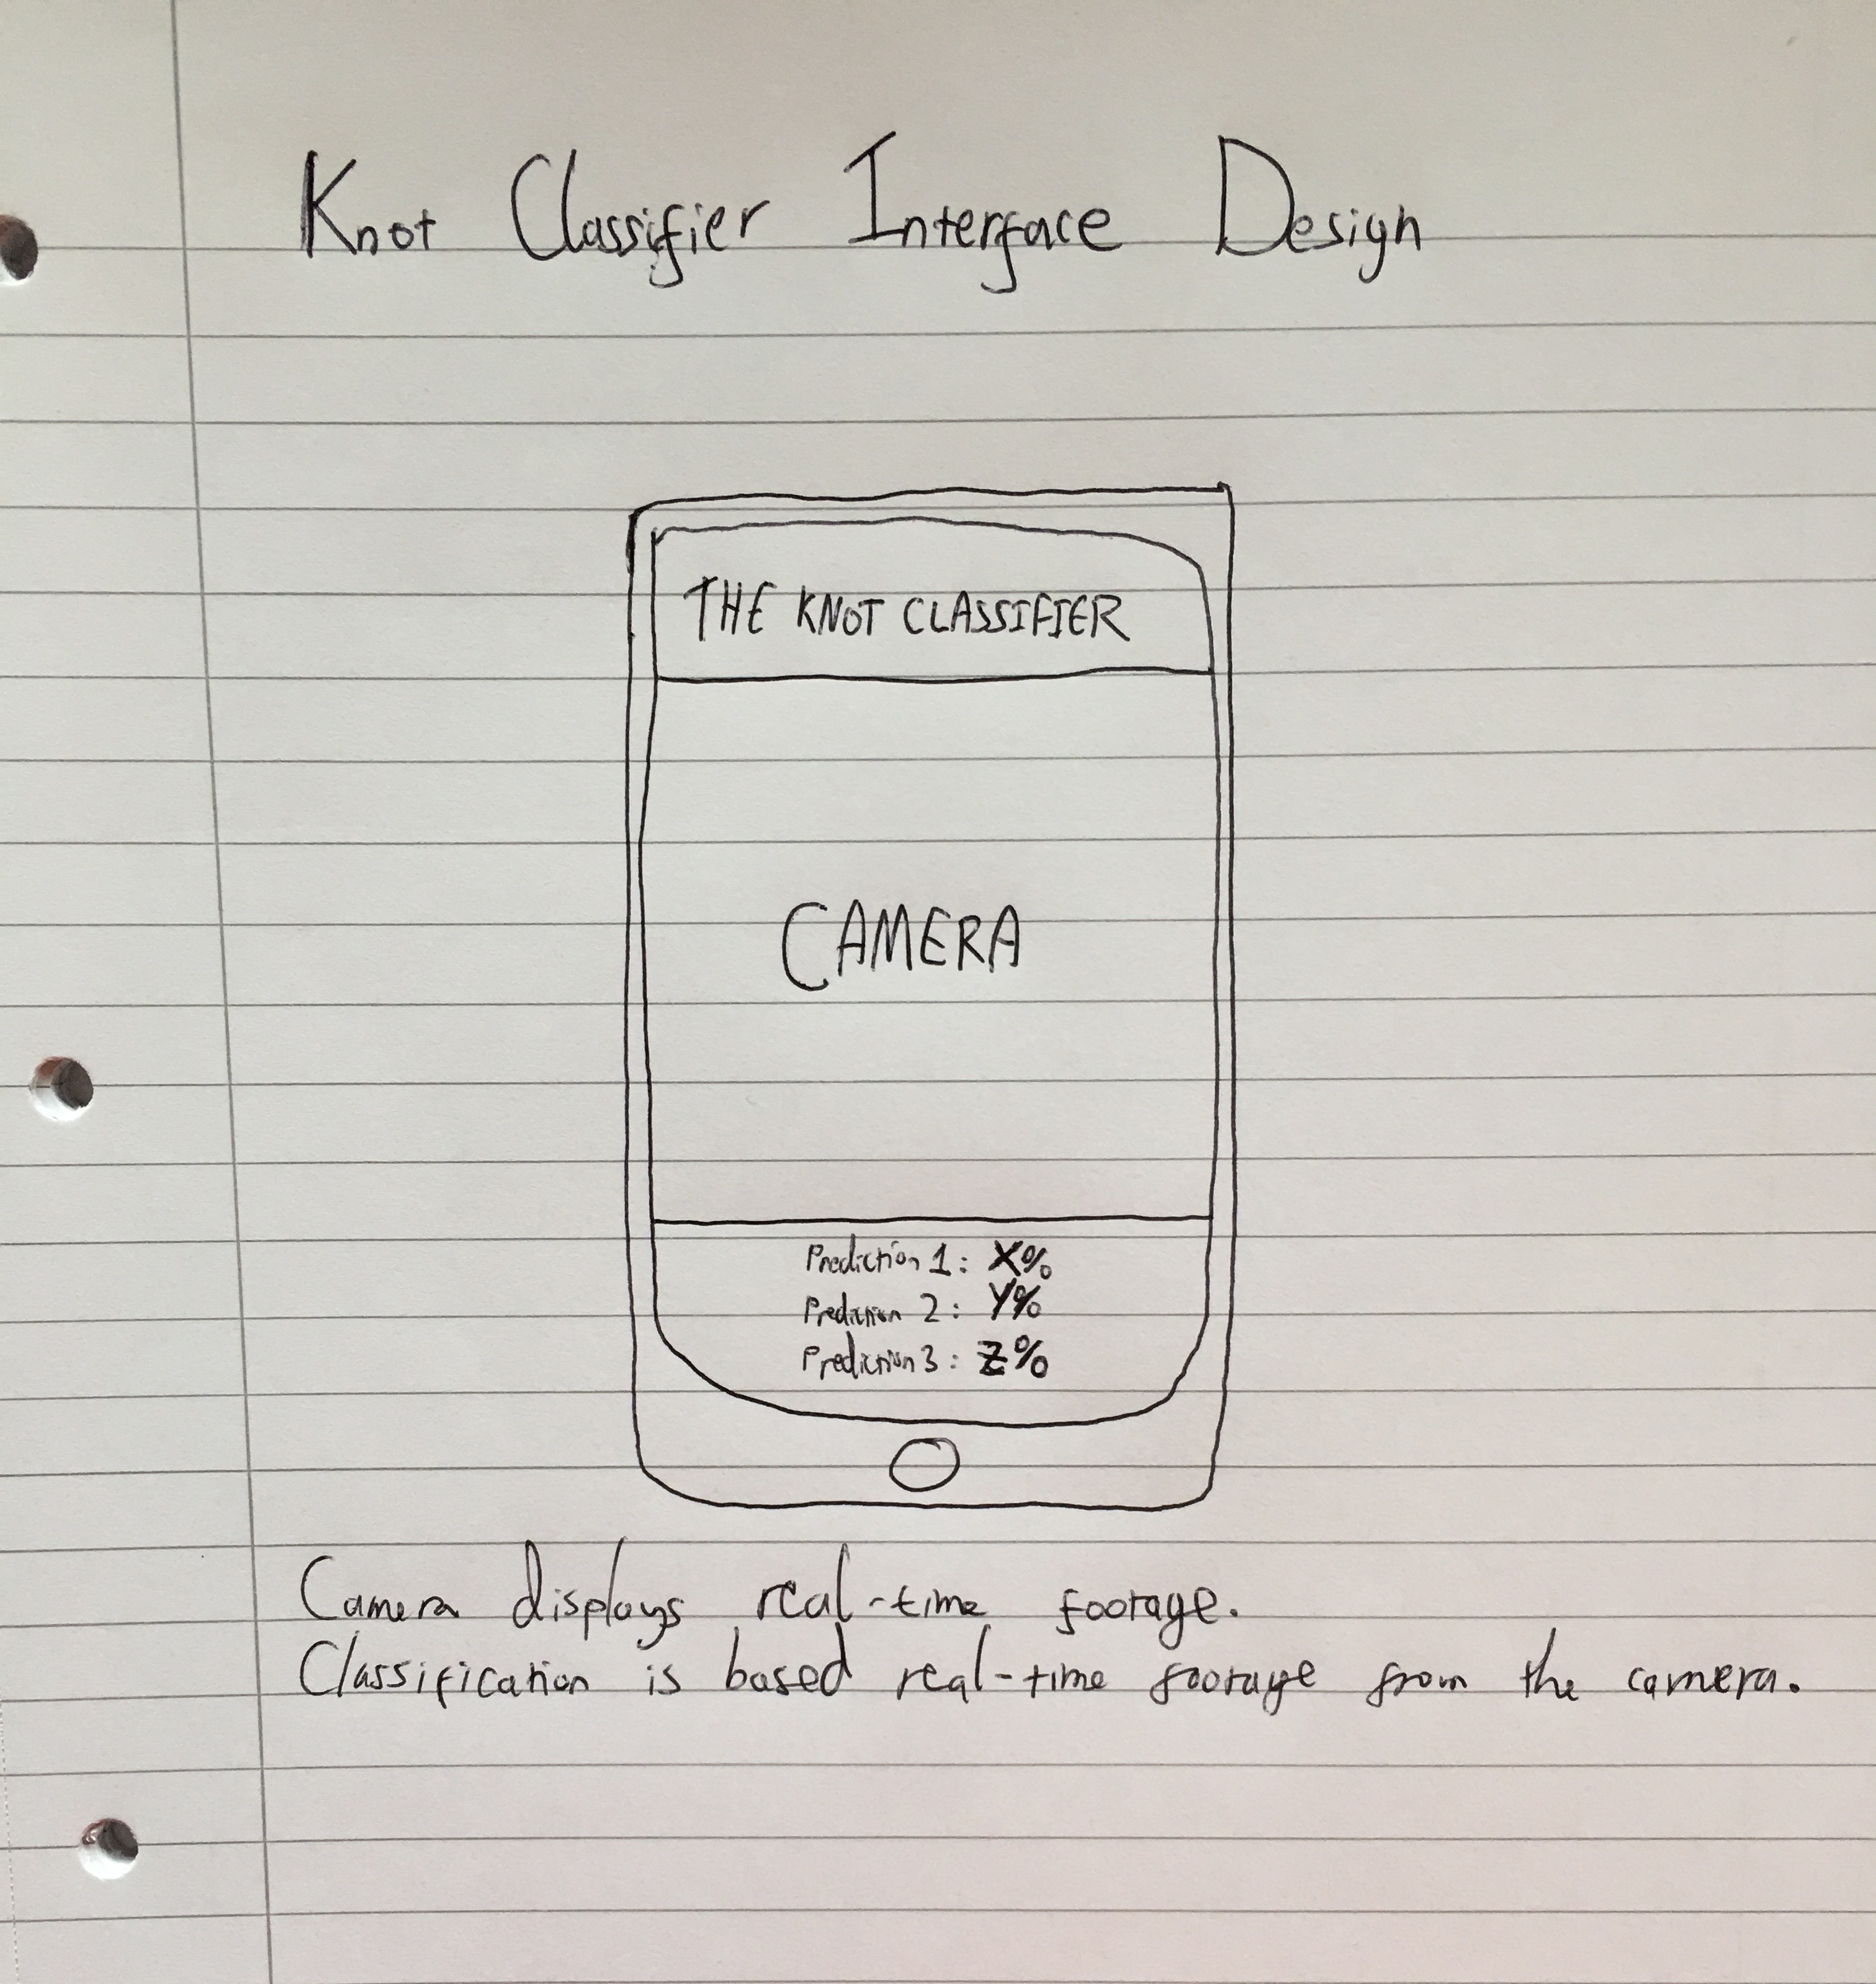 Knot Classifier Interface Design
THE KNOT CLASSIFIER
CAMERA
Prediction 1: X%
Prediction 2: Y%
Prediction 3: Z%
Camera displays real-time footage.
Classification is based real-time footage from the camera.